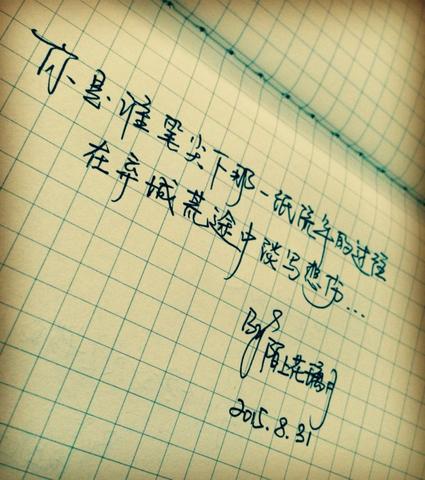 你是谁笔尖下那一纸流年的过程
在弃城荒途中淡写想伤...
By 陌上花璃月
2015.8.31